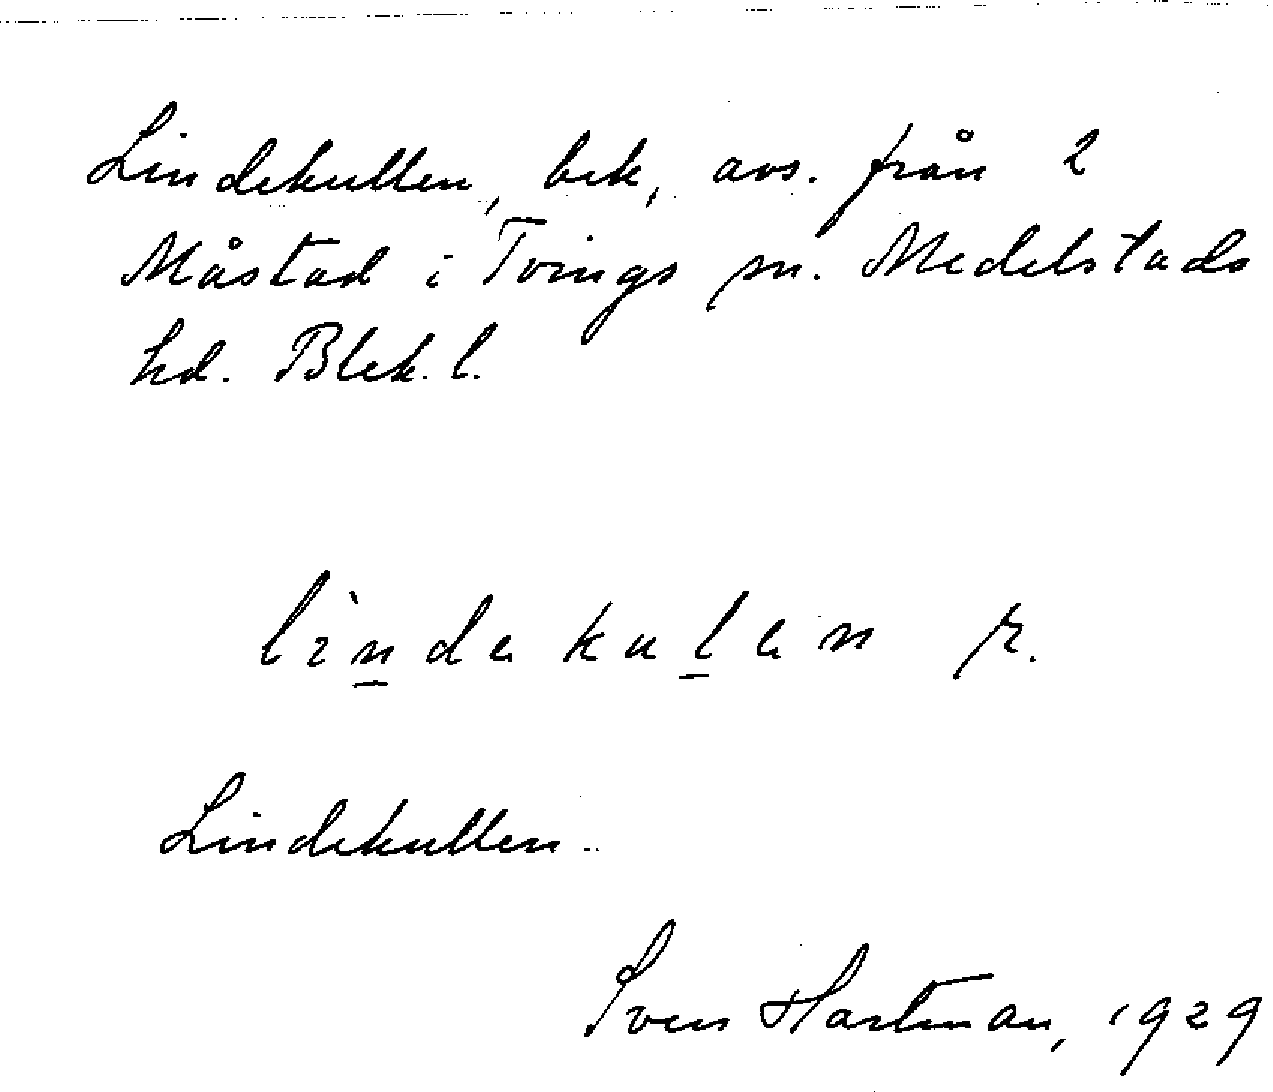 Lindekullen, bek, avs. från 2
Måstad i Tvings sn. Medelstads
hd. Blek. l.
lìndekulen r.
Lindekullen.
Sven Hartman, 1929